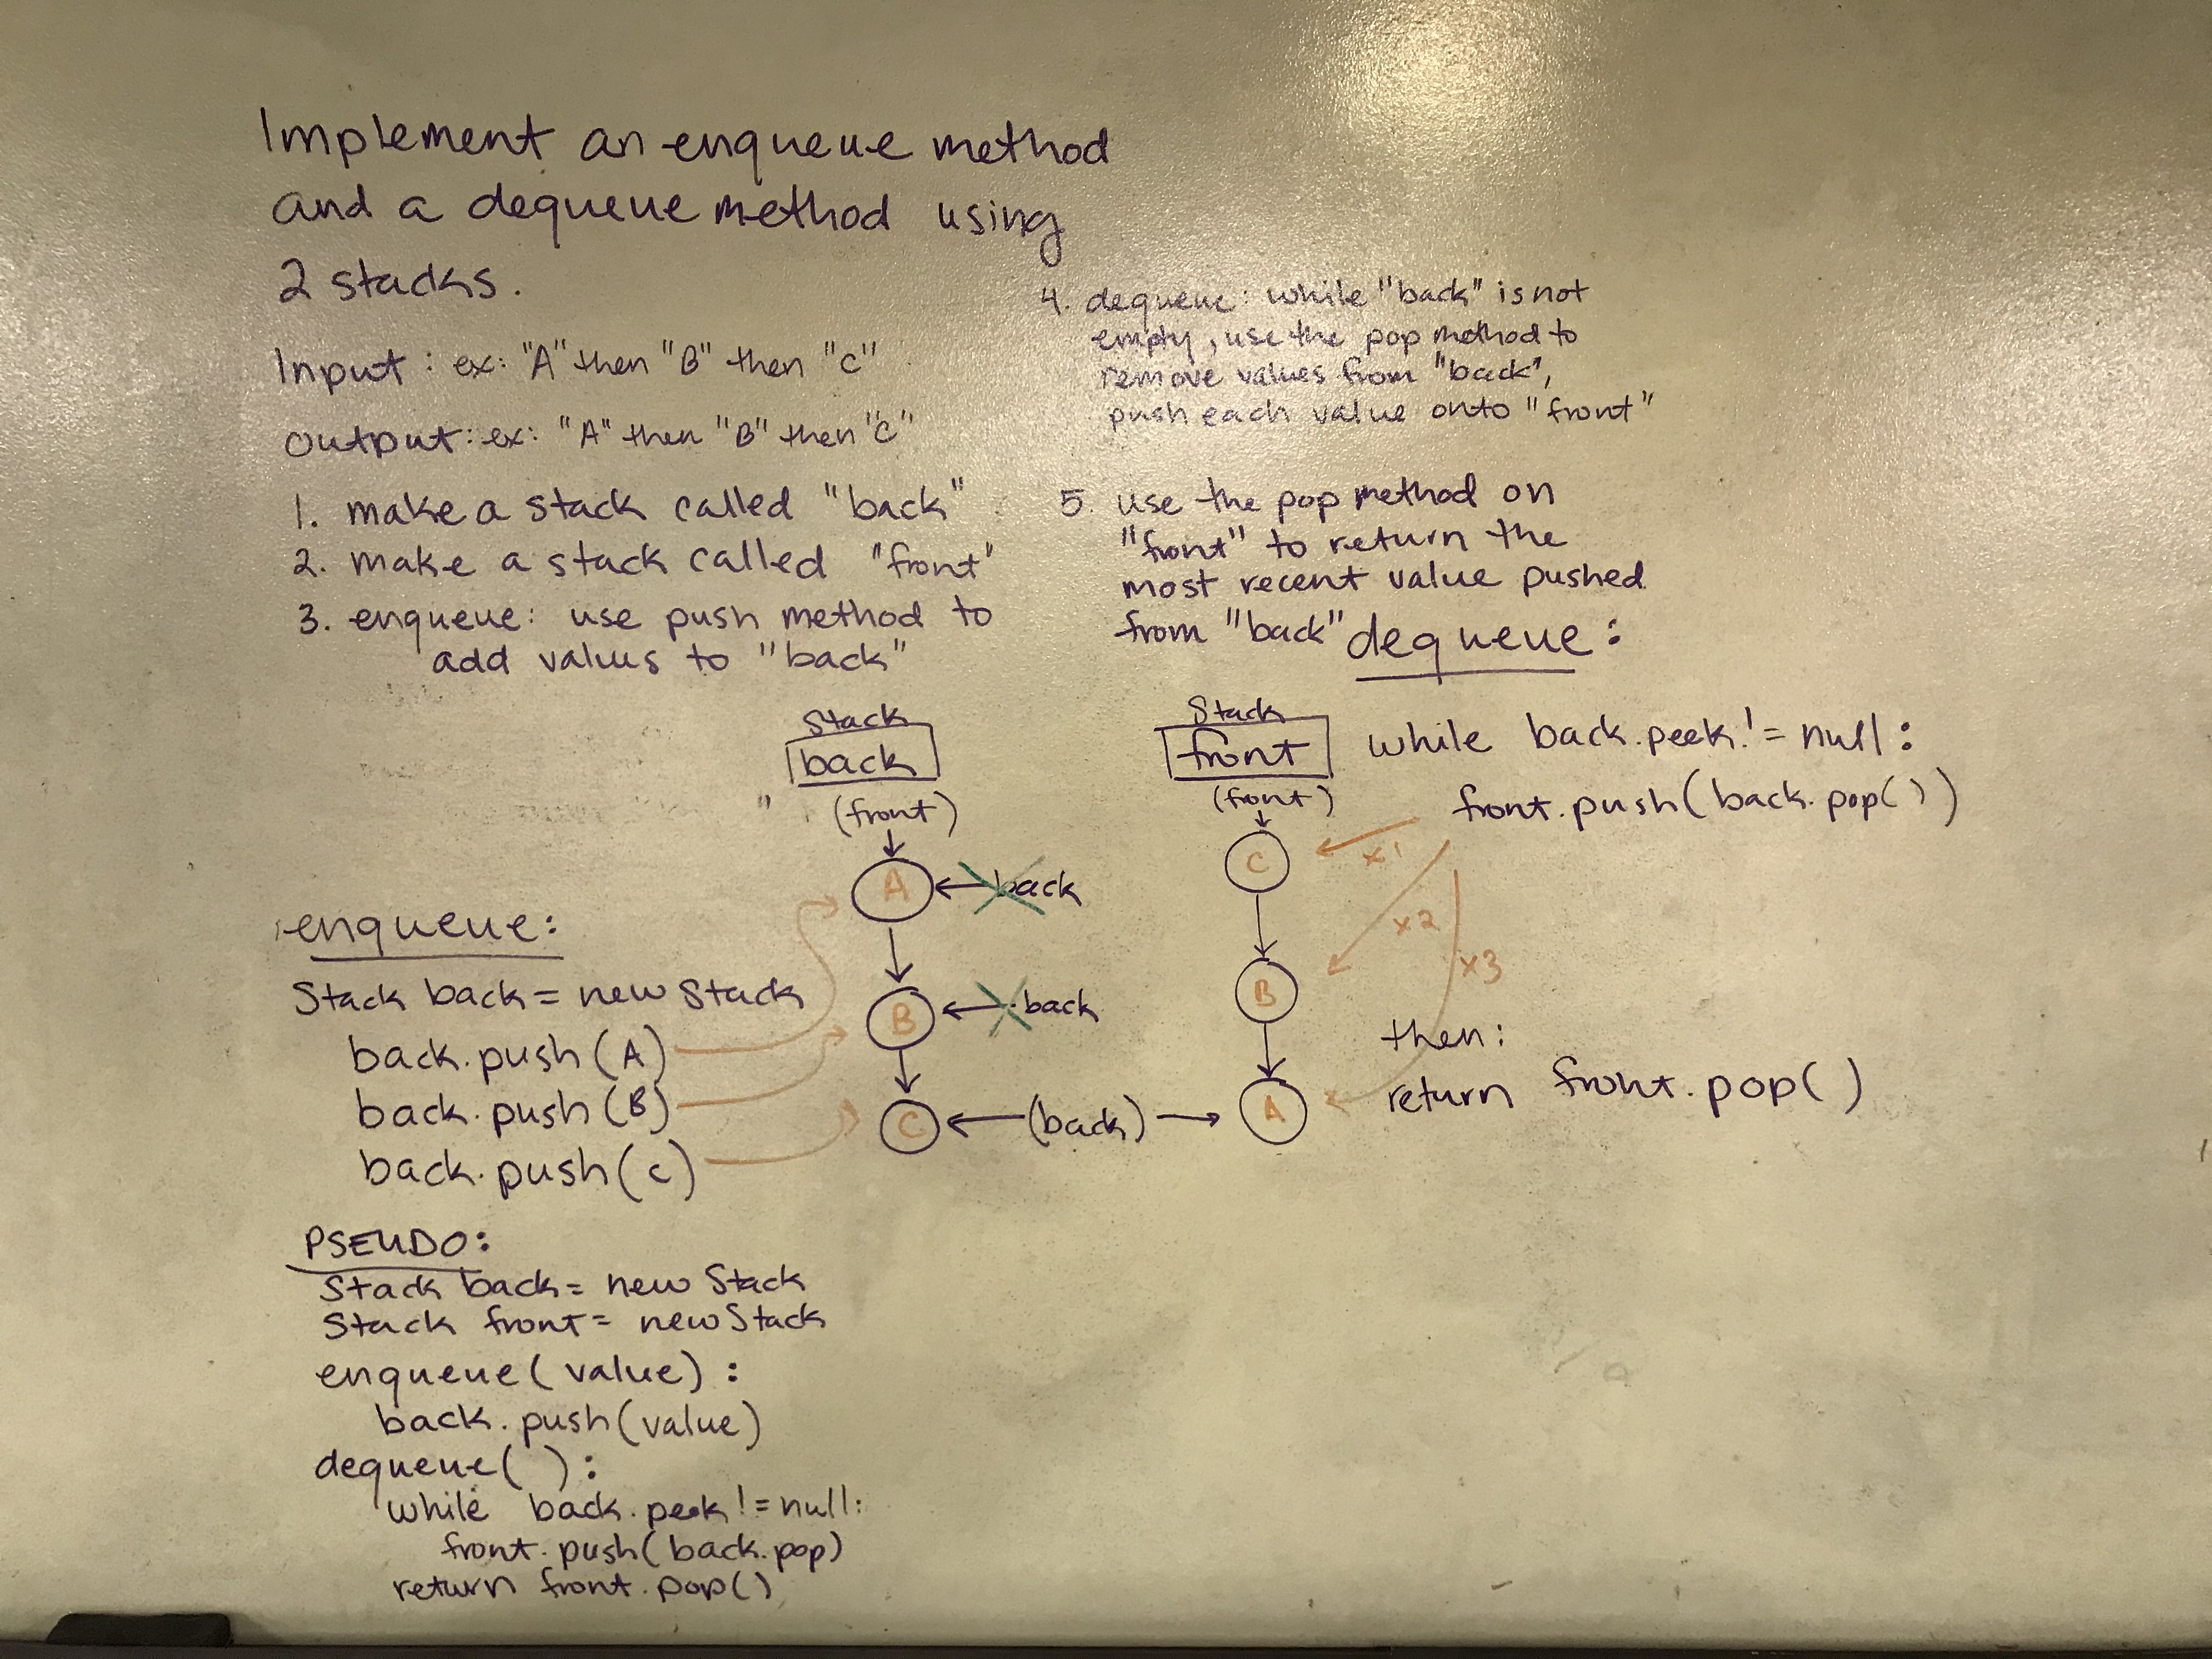 Implement an enqueue method
and a dequeue method using
2 stacks.
Input: ex: "A" then "B" then "C"
Output: ex: "A" then "B" then "C"
1. make a stack called "back"
2. make a stack called "front"
3. enqueue: use push method to
add values to "back"
4. dequeue: while "back" is not
empty, use the pop method to
remove values from "back",
push each value onto "front"
5. use the pop method on
"front" to return the
most recent value pushed
from "back"
enqueue:
Stack back = new Stack
back.push(A)
back.push(B)
back.push(C)
Stack
back
(front)
A
back
B
back
C
(back)
Stack
front
(front)
C
B
A
dequeue:
while back.peek != null:
front.push(back.pop())
x1
x2
x3
then:
return front.pop()
PSEUDO:
Stack back = new Stack
Stack front = new Stack
enqueue(value):
back.push(value)
dequeue():
while back.peek != null:
front.push(back.pop)
return front.pop()